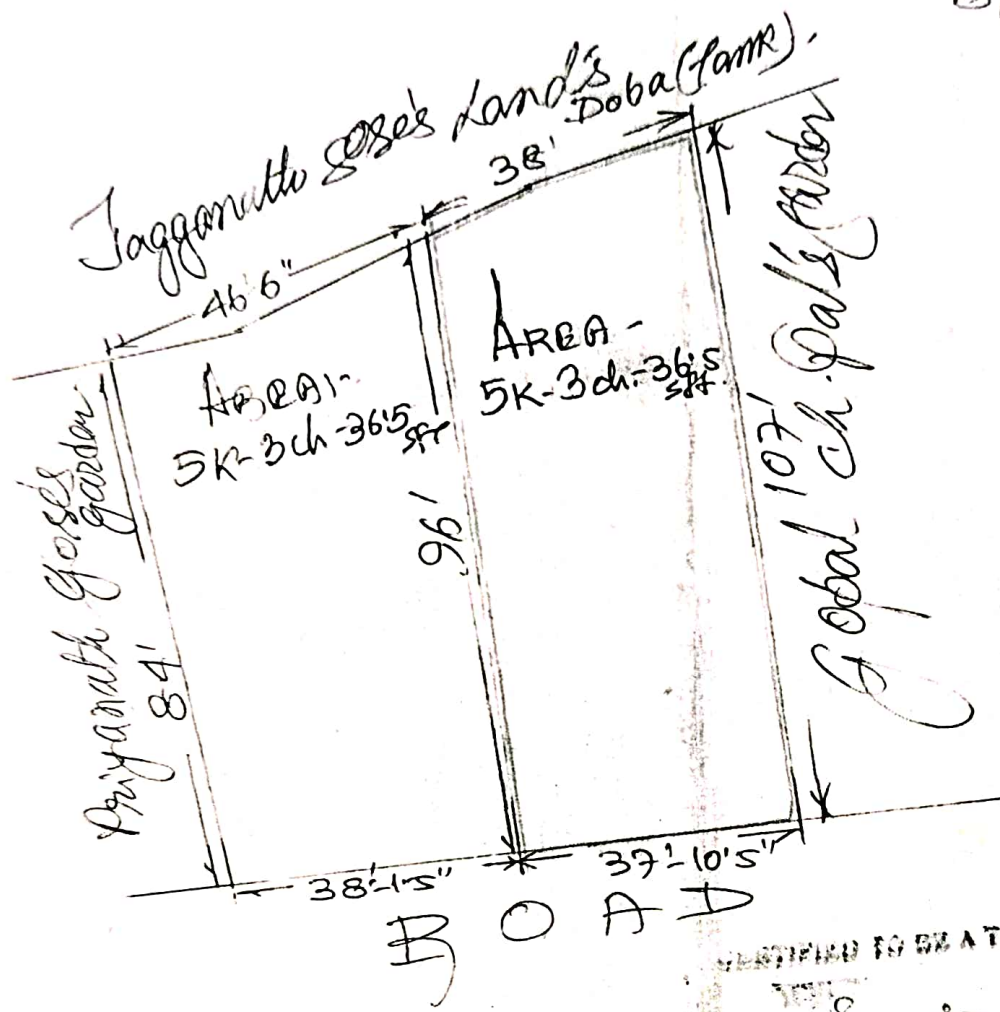 Jagganath Gose's Land's
Doba (Tank).
46'6"
38'
AREA:-
5K-3ch-36'5
sft
AREA-
5K-3ch-36'5
sft
Priyanath Gose's
garden
84'
96'
107'
Gopal Ch. Pal's Garden
38'-1'5"
37'-10'5"
ROAD
CERTIFIED TO BE A T